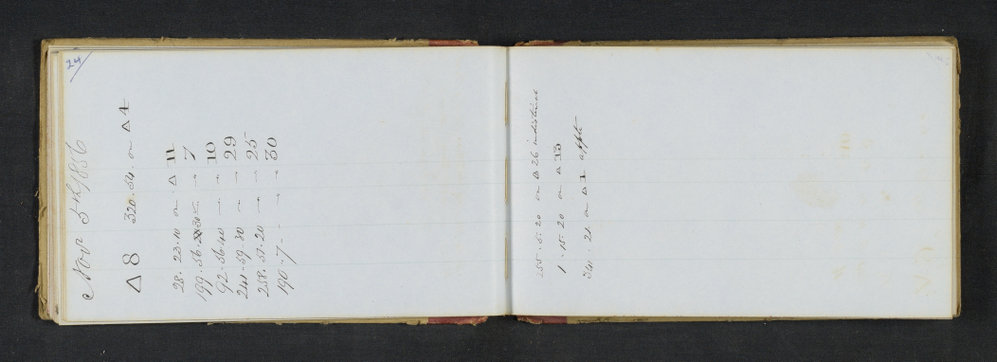 24
Nov 5th 1886
Δ 8 320. 54. on Δ 4
28. 23. 10 on Δ 11
199. 56. 30 " 7
92. 56. 40 " " 10
241. 59. 30 " " 29
258. 51. 20 " " 25
190. 7 - - " " 30
255. 5. 20 on Δ 26 indistinct
1. 15. 20 on Δ 13
341. 21 on Δ 1 apft